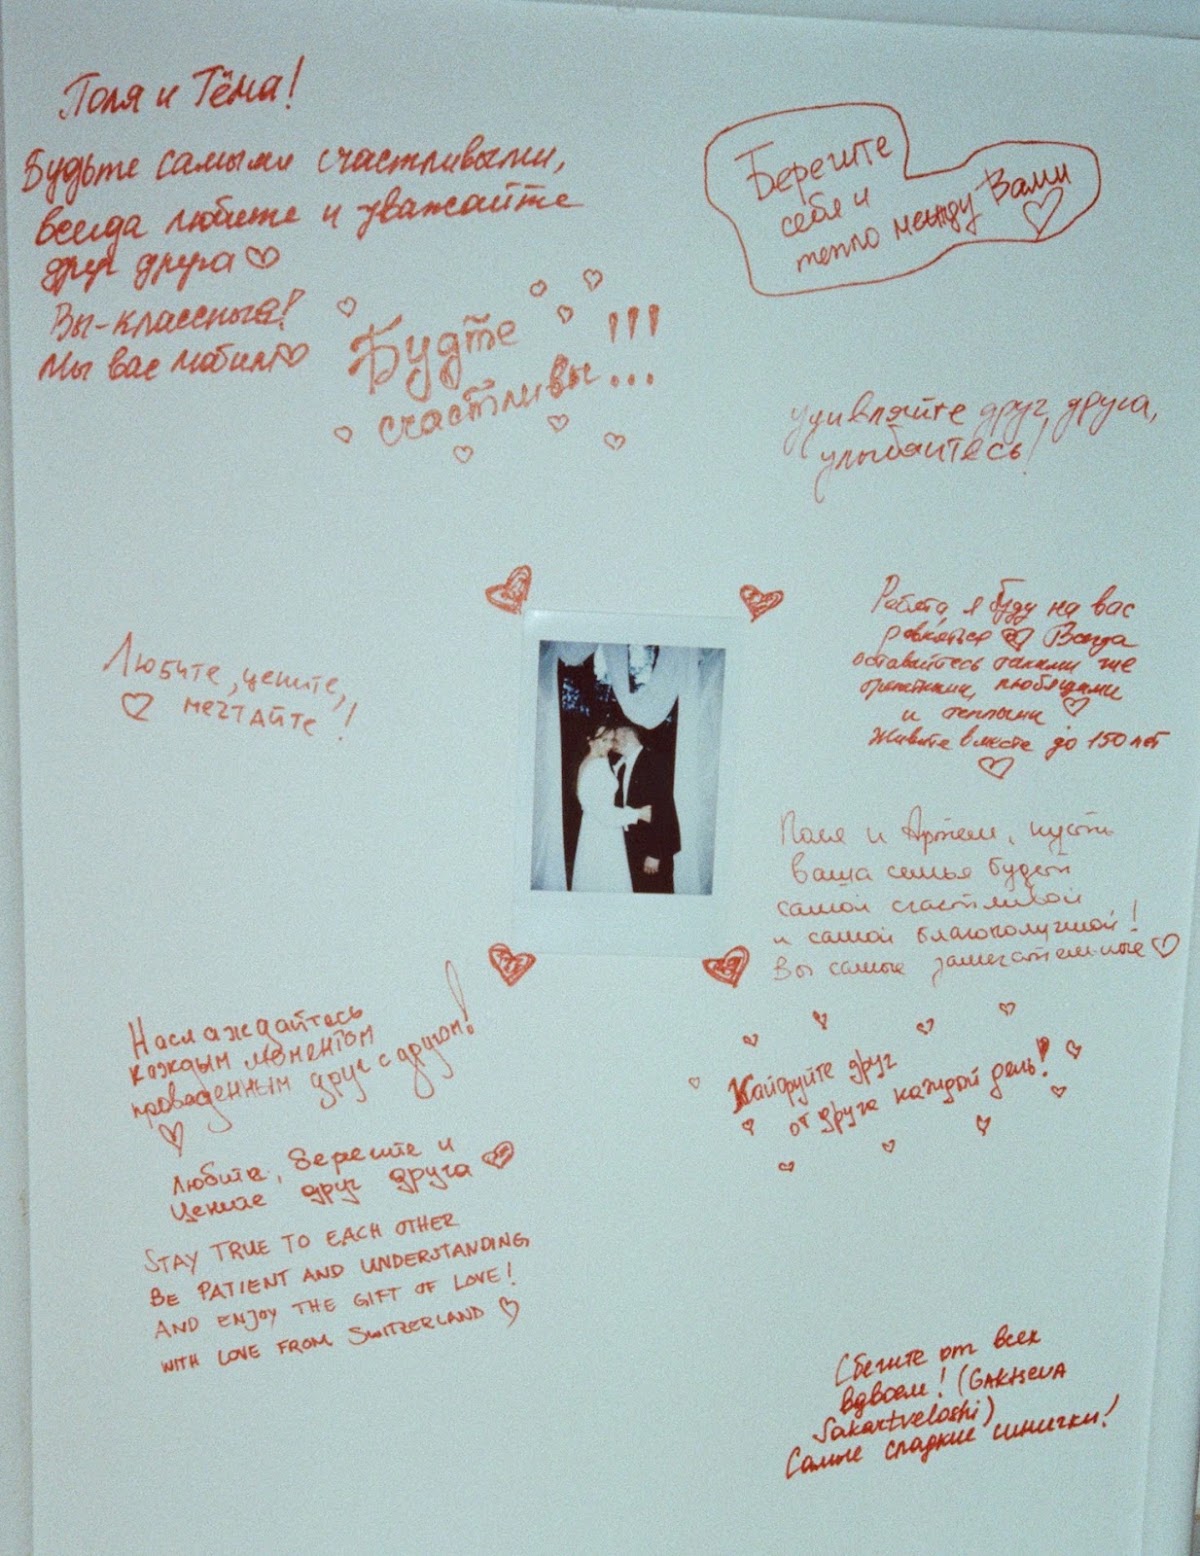 Поля и Тёма!
Будьте самыми счастливыми,
всегда любите и уважайте
друг друга
Вы-классные!
Мы вас любим
Берегите
себя и
тепло между Вами
Будте
счастливы...!!!
Удивляйте друг друга,
улыбайтесь!
Любите, цените,
мечтайте!
Ребята, я буду на вас
равняться Всегда
оставайтесь такими же
любящими
и теплыми
Живите вместе до 150 лет
Поля и Артем, пусть
ваша семья будет
самой счастливой
и самой благополучной!
Вы самые замечательные
Наслаждайтесь
каждым моментом
проведенным друг с другом!
Кайфуйте друг
от друга каждый день!
Любите, берегите и
Цените друг друга
STAY TRUE TO EACH OTHER
BE PATIENT AND UNDERSTANDING
AND ENJOY THE GIFT OF LOVE!
WITH LOVE FROM SWITZERLAND
Сбегите от всех
вдвоем! (GAKHSEVA
Sakartveloshi)
Самые сладкие синички!